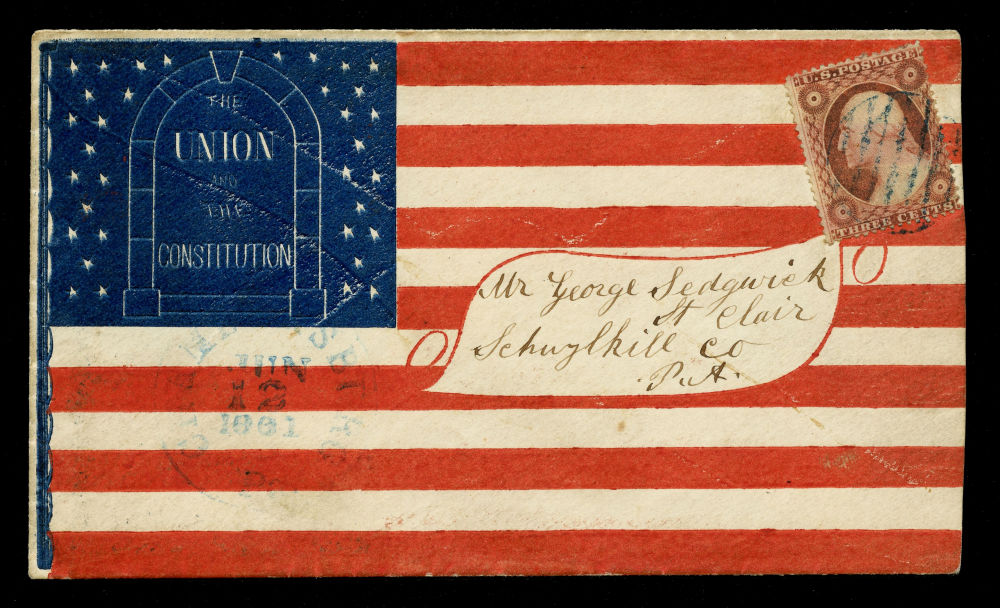 THE
UNION
AND
THE
CONSTITUTION
U.S. POSTAGE
THREE CENTS
Mr George Sedgwick
St Clair
Schuylkill co
P.A.
JUN
12
1861